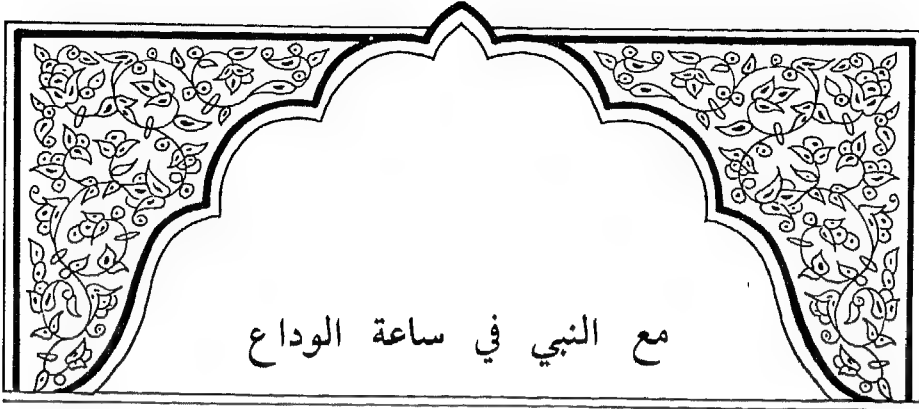 مع النبي في ساعة الوداع